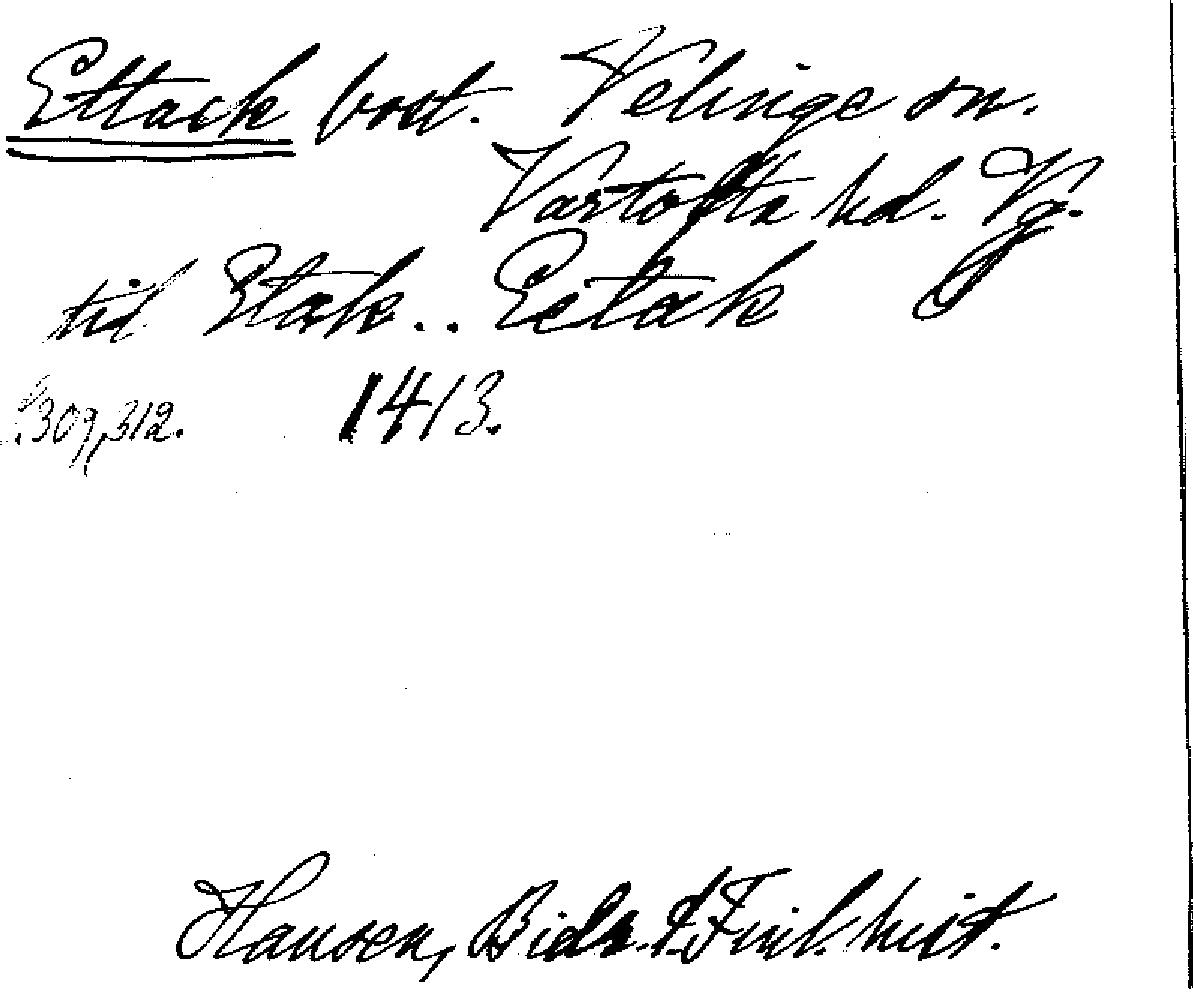 Ettack bost. Velinge sn.
Vartofta hd. Vg.
till Etak.. Eetak
s. 309, 312. 1413.
Hausen, Bidr. t. Finl. hist.